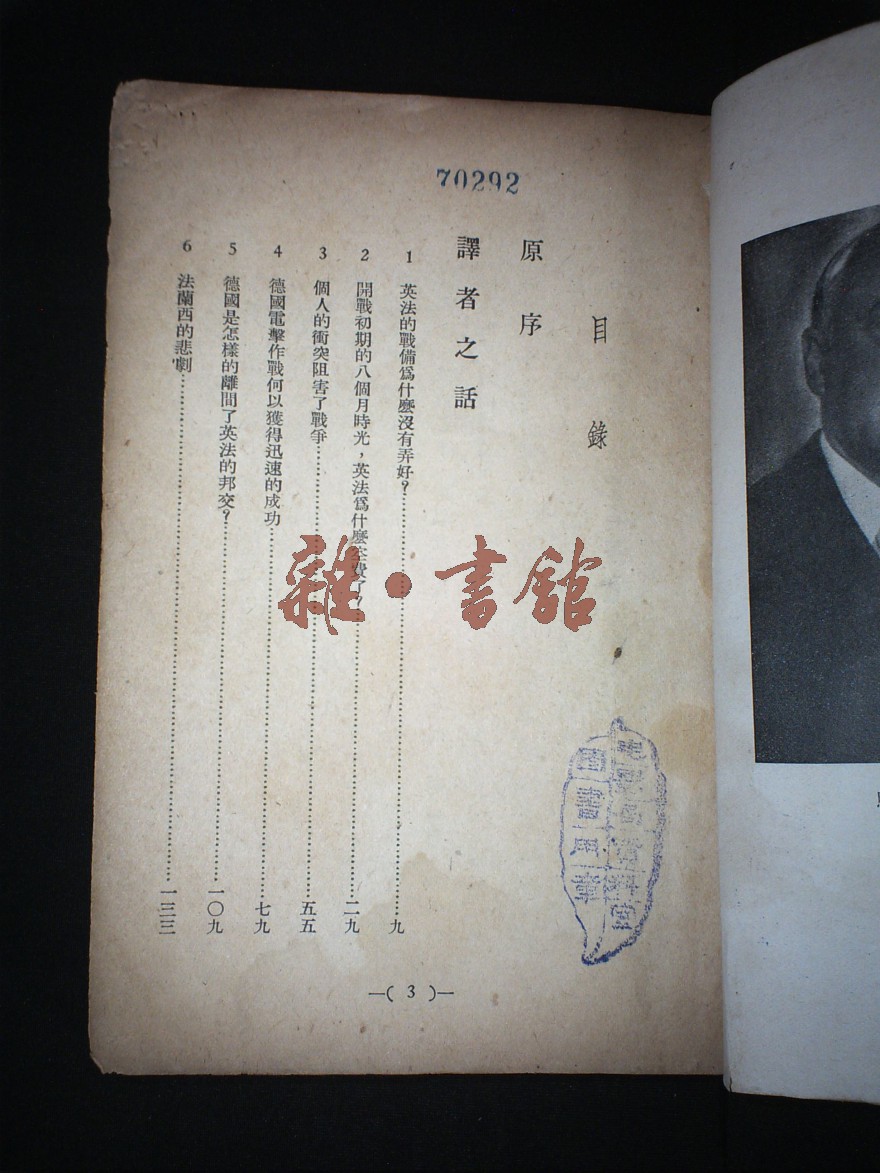 70292
目錄
原序
譯者之話
1 英法的戰備爲什麼沒有弄好?……九
2 開戰初期的八個月時光，英法爲什麼空費了?……二九
3 個人的衝突阻害了戰爭……五五
4 德國電擊作戰何以獲得迅速的成功……七九
5 德國是怎樣的離間了英法的邦交?……一〇九
6 法蘭西的悲劇……一三三
—( 3 )—
雜·書館
資料室
圖書用章